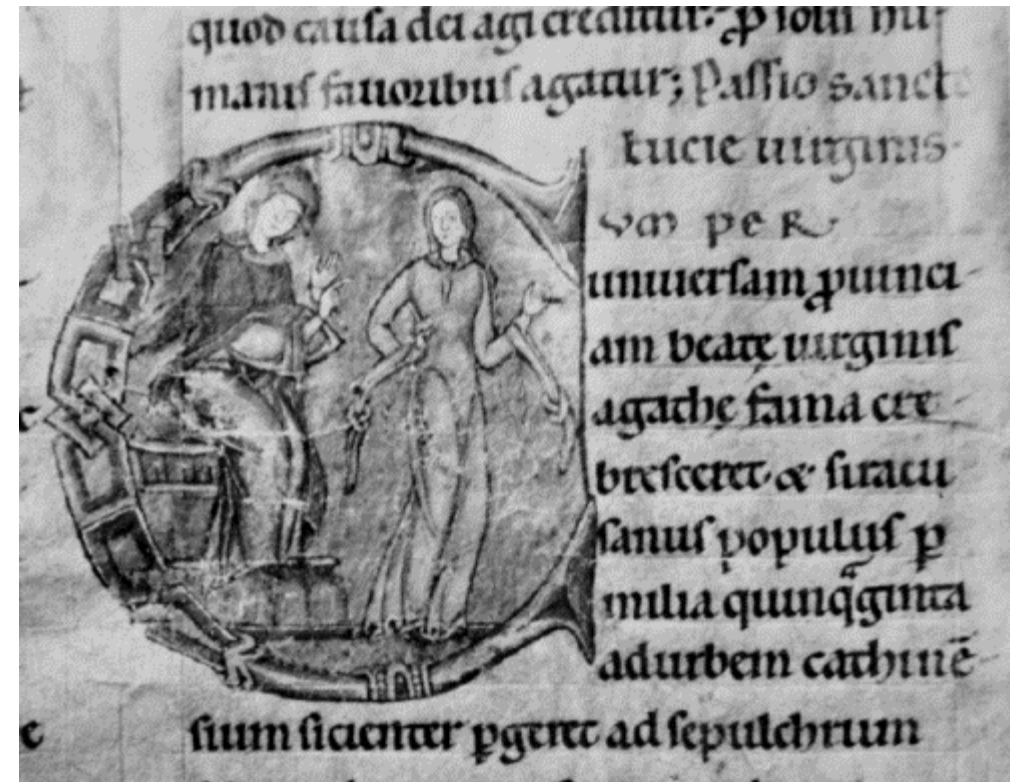 quod causa dei agi creditur; ꝓ solis hu-
manis fauoribus agatur; Passio sancte
lucie uirginis.
VM PER
uniuersam ꝓuinci-
am beatę uirginis
agathę fama cre-
bresceret. & siracu
sanus populus ꝑ
milia quinqᵃginta
ad urbem cathinē-
sium sicienter ꝑgeret ad sepulchrum